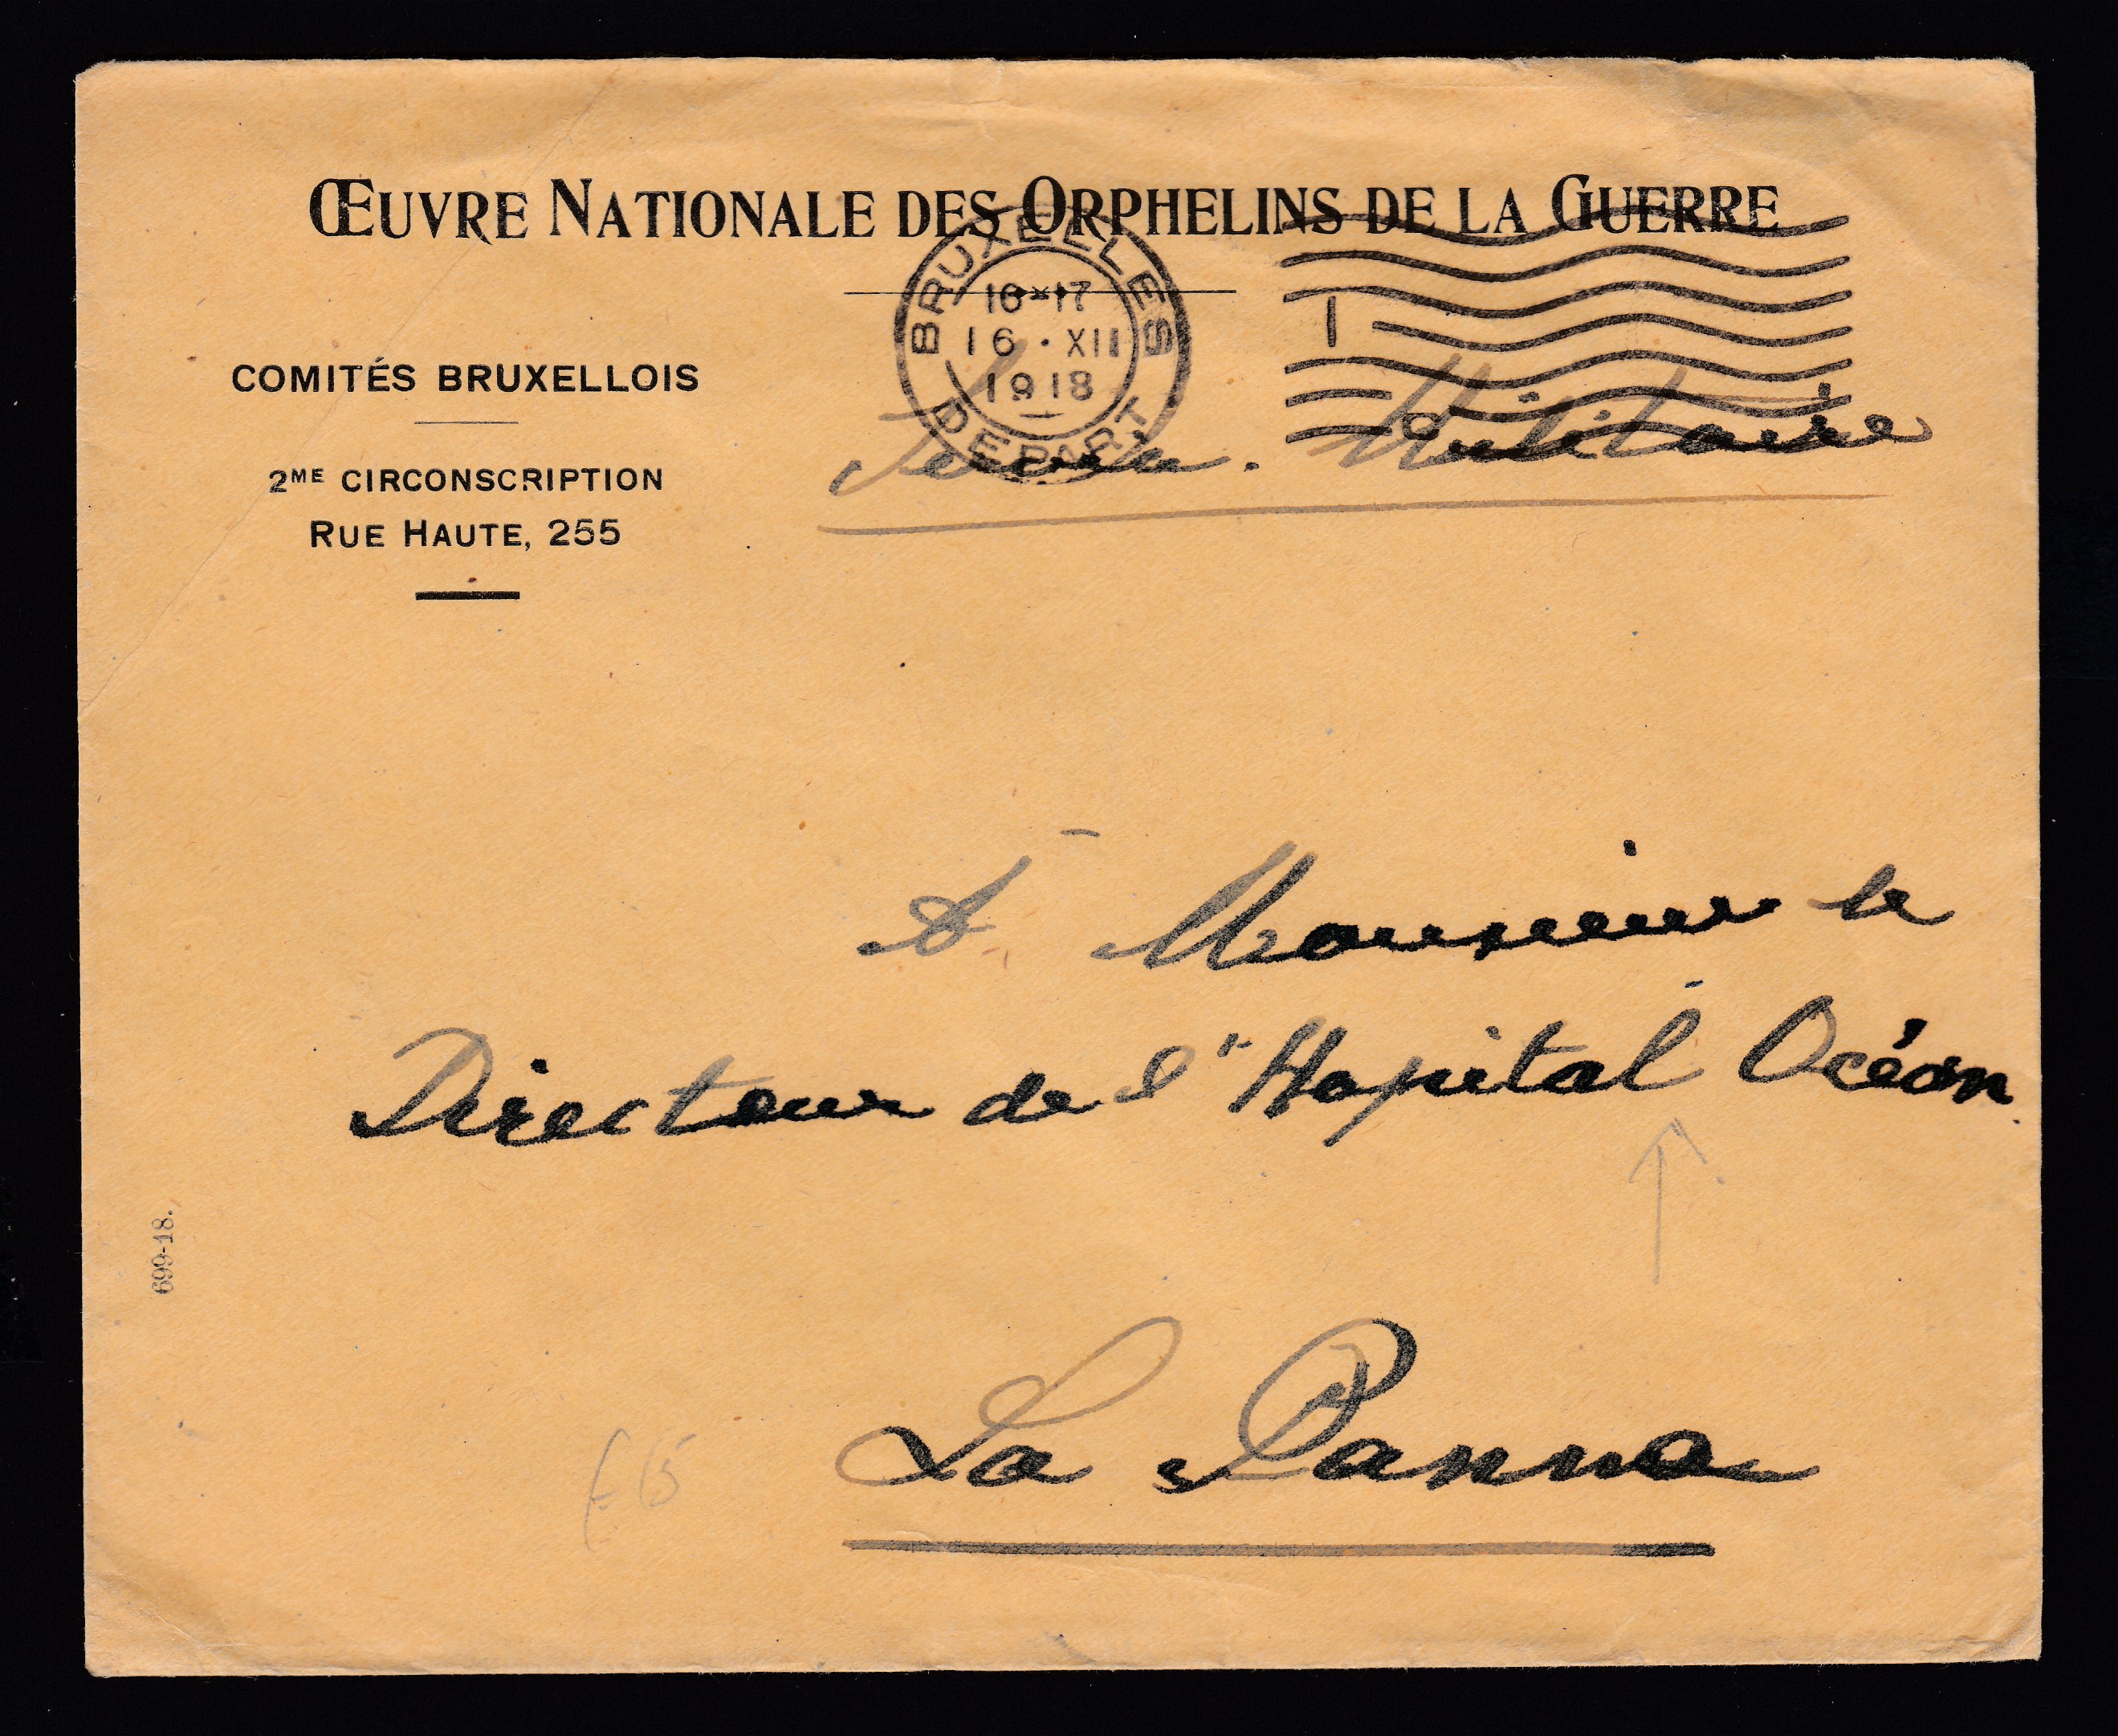 ŒUVRE NATIONALE DES ORPHELINS DE LA GUERRE
BRUXELLES
16-17
16 · XII
1918
DEPART
1
COMITÉS BRUXELLOIS
2ME CIRCONSCRIPTION
RUE HAUTE, 255
Militaire
A Monsieur le
Directeur de l'Hopital Océan
La Panne
699-18.